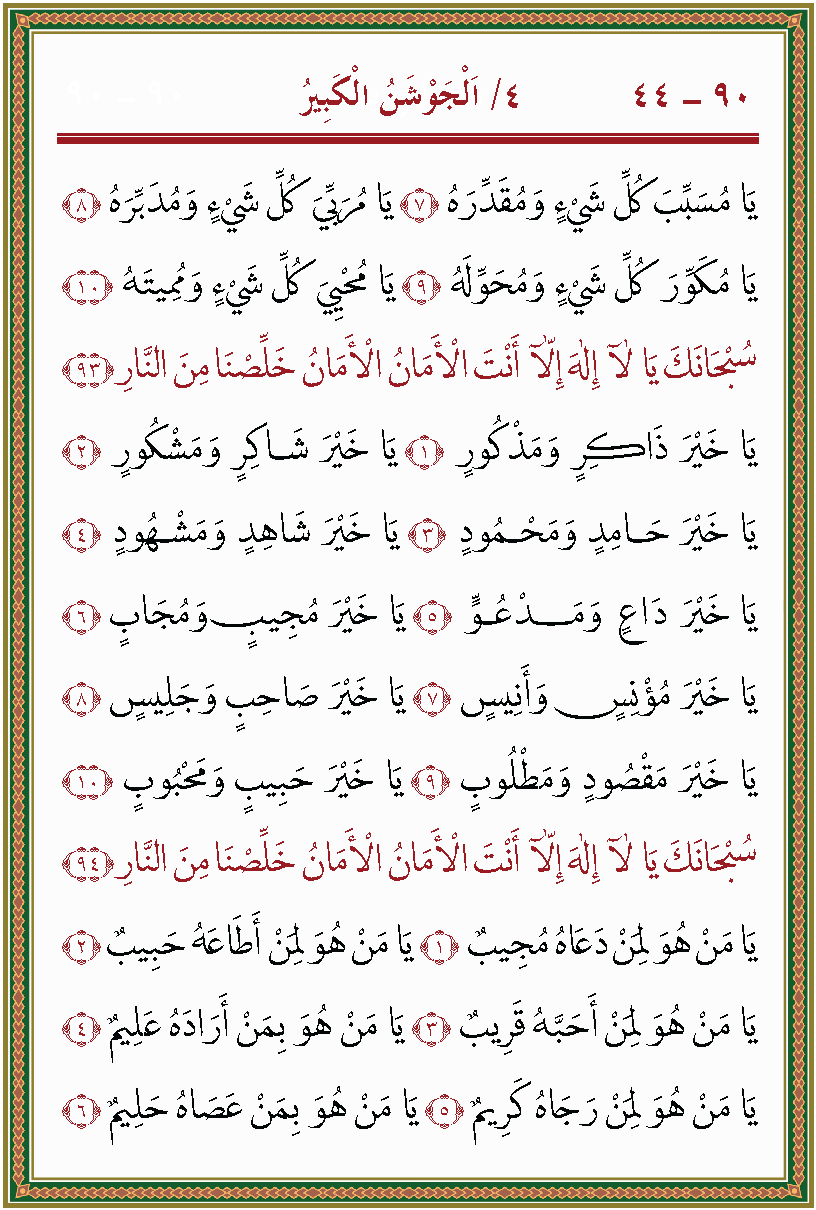 ٩٠ – ٤٤ ٤/ اَلْجَوْشَنُ الْكَبِيرُ ٩٠ – ٩٠
يَا مُسَبِّبَ كُلِّ شَيْءٍ وَمُقَدِّرَهُ ﴿٧﴾ يَا مُرَبِّيَ كُلِّ شَيْءٍ وَمُدَبِّرَهُ ﴿٨﴾
يَا مُكَوِّرَ كُلِّ شَيْءٍ وَمُحَوِّلَهُ ﴿٩﴾ يَا مُحْيِيَ كُلِّ شَيْءٍ وَمُمِيتَهُ ﴿١٠﴾
سُبْحَانَكَ يَا لَٓا إِلٰهَ إِلَّٓا أَنْتَ الْأَمَانُ الْأَمَانُ خَلِّصْنَا مِنَ النَّارِ ﴿٩٣﴾
يَا خَيْرَ ذَاكِرٍ وَمَذْكُورٍ ﴿١﴾ يَا خَيْرَ شَاكِرٍ وَمَشْكُورٍ ﴿٢﴾
يَا خَيْرَ حَامِدٍ وَمَحْمُودٍ ﴿٣﴾ يَا خَيْرَ شَاهِدٍ وَمَشْهُودٍ ﴿٤﴾
يَا خَيْرَ دَاعٍ وَمَدْعُوٍّ ﴿٥﴾ يَا خَيْرَ مُجِيبٍ وَمُجَابٍ ﴿٦﴾
يَا خَيْرَ مُؤْنِسٍ وَأَنِيسٍ ﴿٧﴾ يَا خَيْرَ صَاحِبٍ وَجَلِيسٍ ﴿٨﴾
يَا خَيْرَ مَقْصُودٍ وَمَطْلُوبٍ ﴿٩﴾ يَا خَيْرَ حَبِيبٍ وَمَحْبُوبٍ ﴿١٠﴾
سُبْحَانَكَ يَا لَٓا إِلٰهَ إِلَّٓا أَنْتَ الْأَمَانُ الْأَمَانُ خَلِّصْنَا مِنَ النَّارِ ﴿٩٤﴾
يَا مَنْ هُوَ لِمَنْ دَعَاهُ مُجِيبٌ ﴿١﴾ يَا مَنْ هُوَ لِمَنْ أَطَاعَهُ حَبِيبٌ ﴿٢﴾
يَا مَنْ هُوَ لِمَنْ أَحَبَّهُ قَرِيبٌ ﴿٣﴾ يَا مَنْ هُوَ بِمَنْ أَرَادَهُ عَلِيمٌ ﴿٤﴾
يَا مَنْ هُوَ لِمَنْ رَجَاهُ كَرِيمٌ ﴿٥﴾ يَا مَنْ هُوَ بِمَنْ عَصَاهُ حَلِيمٌ ﴿٦﴾